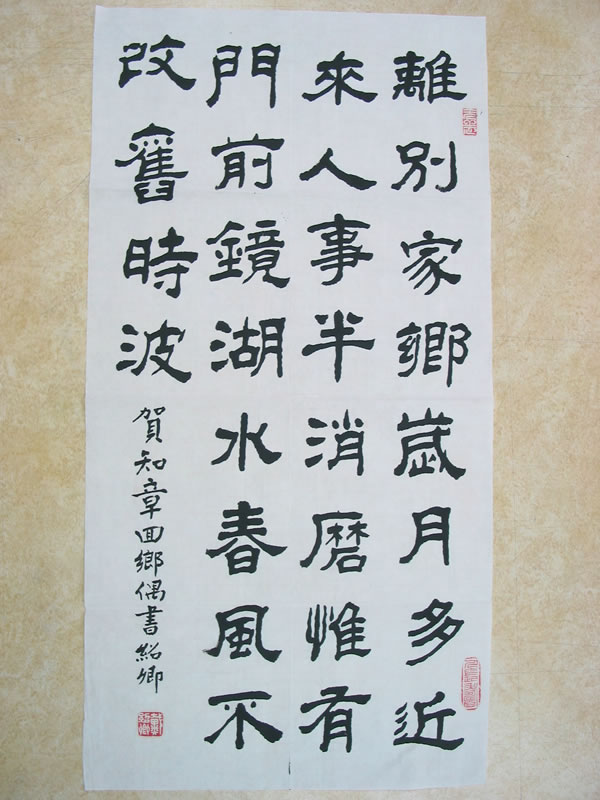 離別家鄉歲月多近
來人事半消磨惟有
門前鏡湖水春風不
改舊時波
賀知章回鄉偶書紹卿